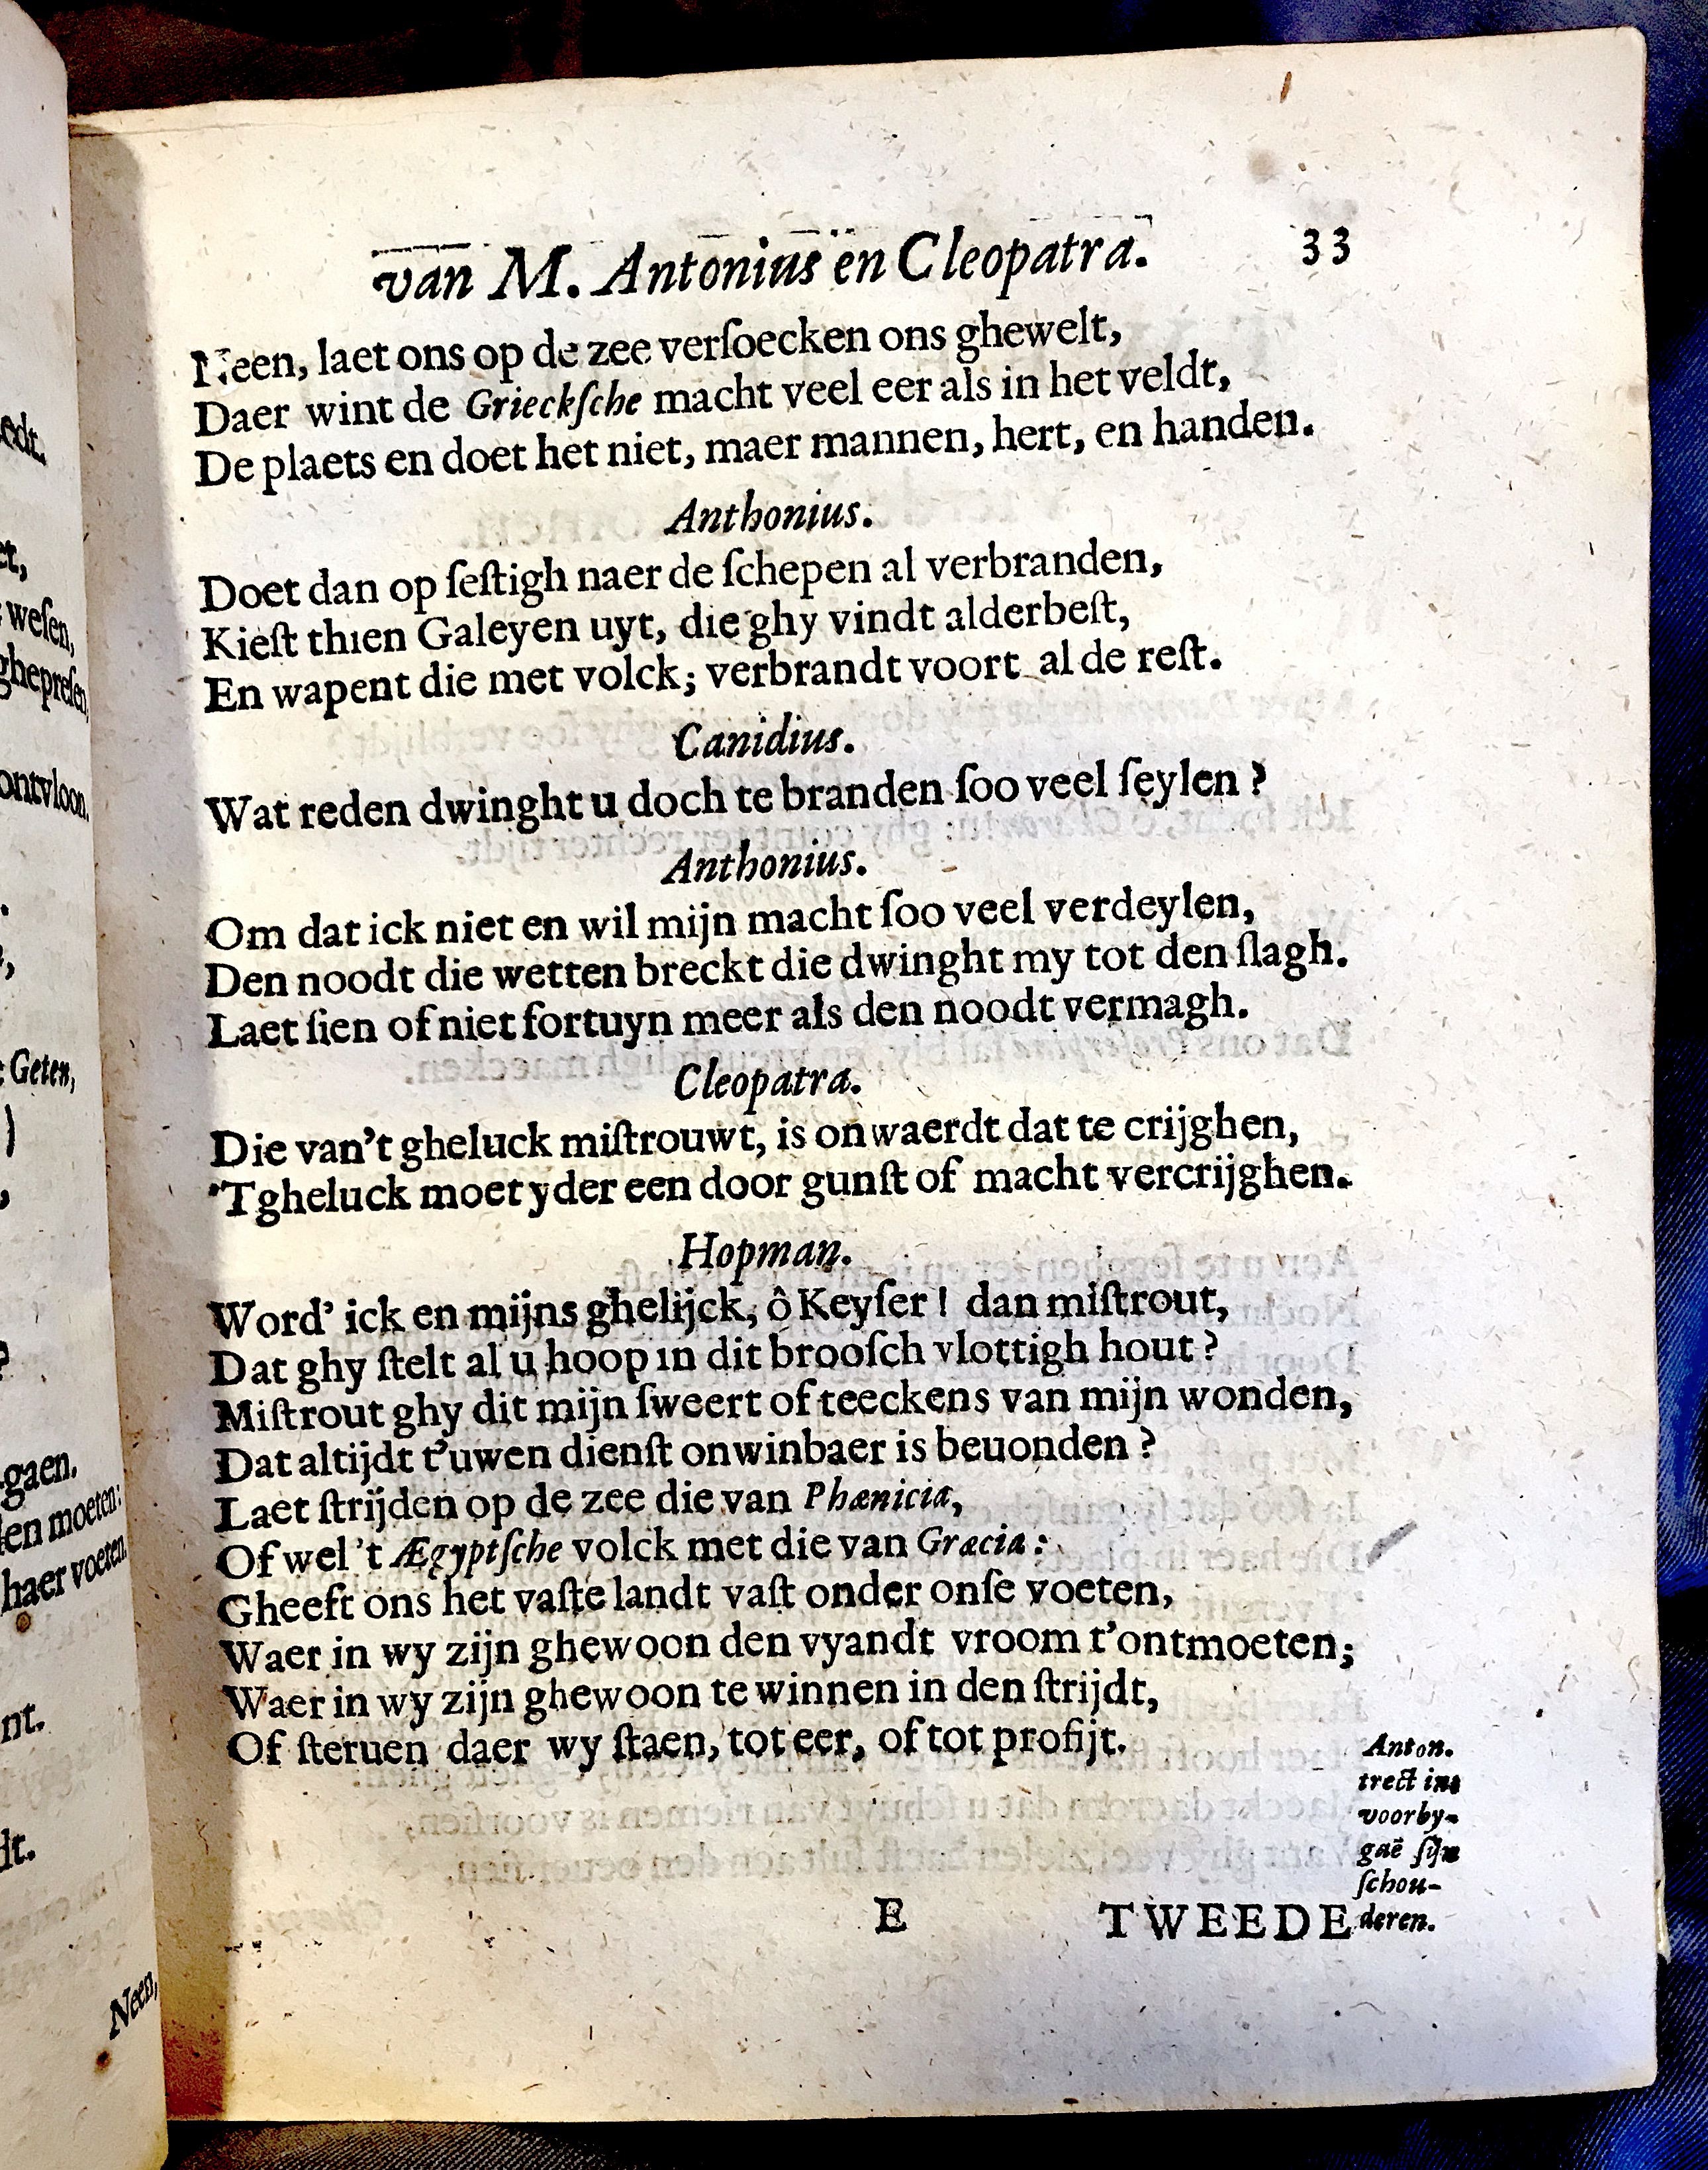 van M. Antonius en Cleopatra. 33
Neen, laet ons op de zee verſoecken ons ghewelt,
Daer wint de Grieckſche macht veel eer als in het veldt,
De plaets en doet het niet, maer mannen, hert, en handen.
Anthonius.
Doet dan op ſeſtigh naer de ſchepen al verbranden,
Kieſt thien Galeyen uyt, die ghy vindt alderbeſt,
En wapent die met volck; verbrandt voort al de reſt.
Canidius.
Wat reden dwinght u doch te branden ſoo veel ſeylen?
Anthonius.
Om dat ick niet en wil mijn macht ſoo veel verdeylen,
Den noodt die wetten breckt die dwinght my tot den ſlagh.
Laet ſien of niet fortuyn meer als den noodt vermagh.
Cleopatra.
Die van't gheluck miſtrouwt, is onwaerdt dat te crijghen,
'Tgheluck moet yder een door gunſt of macht vercrijghen.
Hopman.
Word' ick en mijns ghelijck, ô Keyſer! dan miſtrout,
Dat ghy ſtelt al u hoop in dit brooſch vlottigh hout?
Miſtrout ghy dit mijn ſweert of teeckens van mijn wonden,
Dat altijdt t'uwen dienſt onwinbaer is beuonden?
Laet ſtrijden op de zee die van Phænicia,
Of wel 't Ægyptſche volck met die van Græcia:
Gheeft ons het vaſte landt vaſt onder onſe voeten,
Waer in wy zijn ghewoon den vyandt vroom t'ontmoeten;
Waer in wy zijn ghewoon te winnen in den ſtrijdt,
Of ſteruen daer wy ſtaen, tot eer, of tot profijt.
Anton.
trect int
voorby-
gaē ſijn
ſchou-
deren.
E TWEEDE
edt.
et,
weſen,
ghepreſen,
ontvloon.
Geten,
)
?
gaen.
en moeten:
haer voeten.
nt.
dt.
Neen,